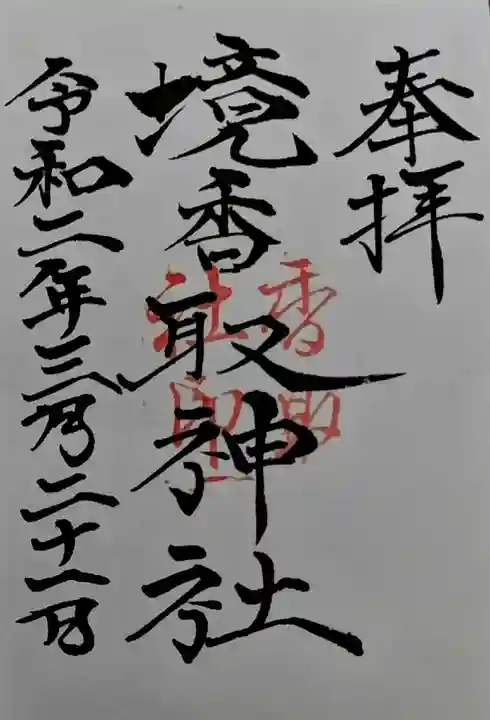 奉拝
境香取神社
香取
社印
令和二年三月二十一日